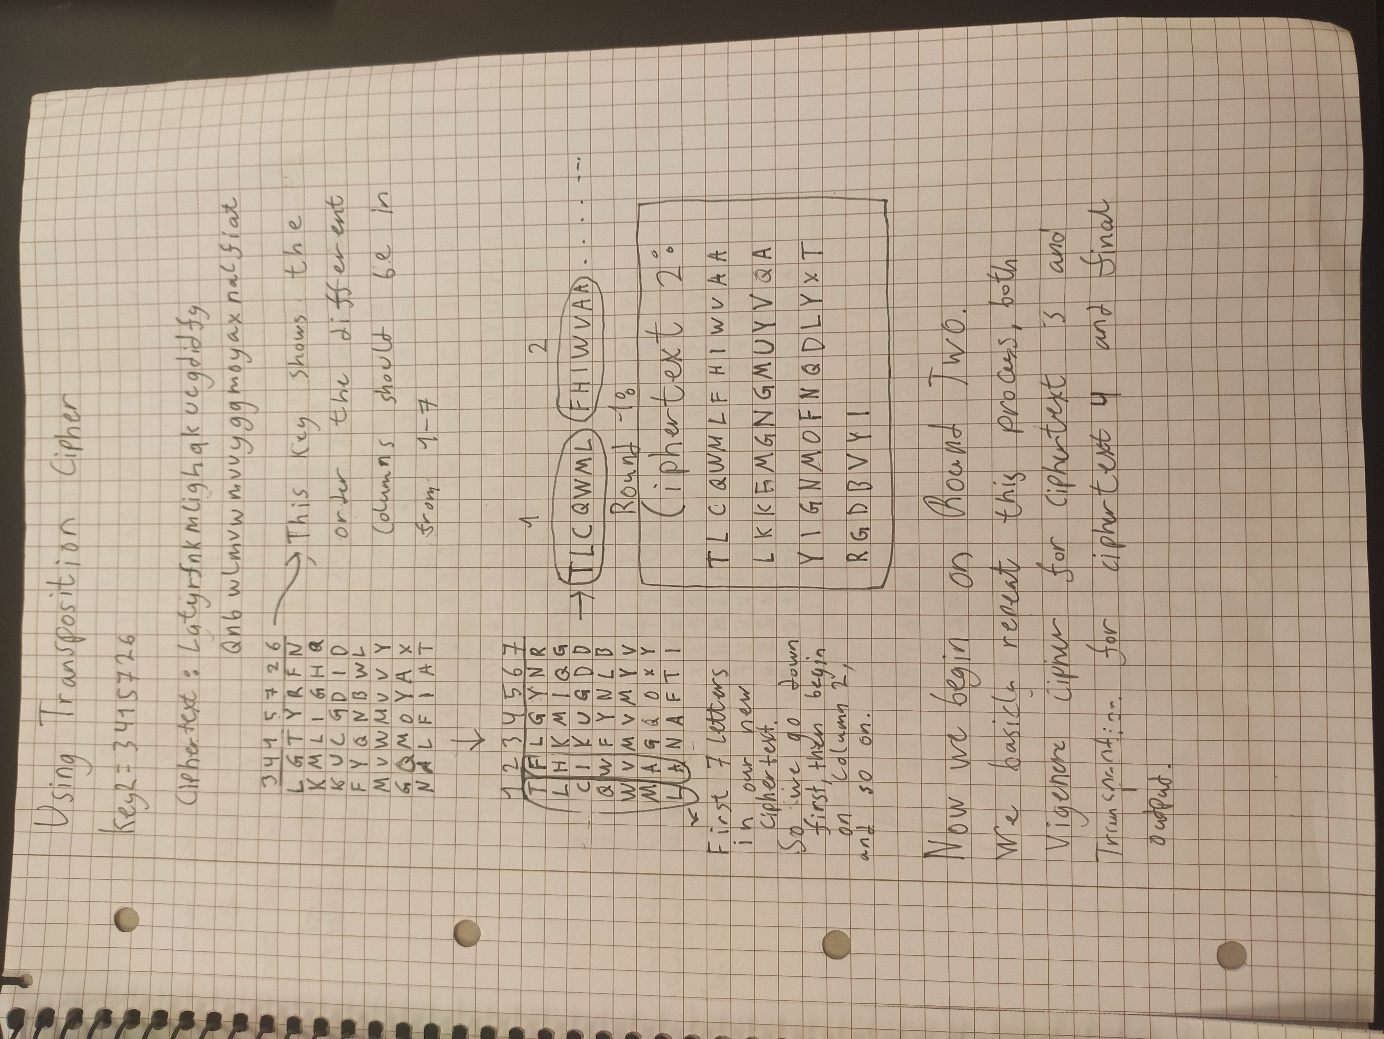 Using Transposition Cipher
Key2 = 3415726
Ciphertext: Latyrfnkmlighqkucgdidfy
qnbwlmvwmvvyggmoyaxnalfiat
3415726
LGTYRFN
KMLIGHQ
KUCGDID
FYQNBWL
MVWMUVY
GQMOYAX
NALFIAT
This key shows the
order the different
columns should be in
from 1-7
1234567
TFLGYNR
LHKMIQG
CIKUGDD
QWFYNLB
WVMVMYV
MAGQOXY
LANAFTI
1 2
→ TLCQWML FHIWVAA .......
First 7 letters
in our new
ciphertext.
So we go down
first, then begin
on column 2,
and so on.
Round 1:
Ciphertext 2:
TLCQWMLFHIWVAA
LKKFMGNGMUYVQA
YIGNMOFNQDLYXT
RGDBVYI
Now we begin on Round Two.
We basicly repeat this process, both
Vigenere cipher for ciphertext 3 and
Transposition for ciphertext 4 and final
output.